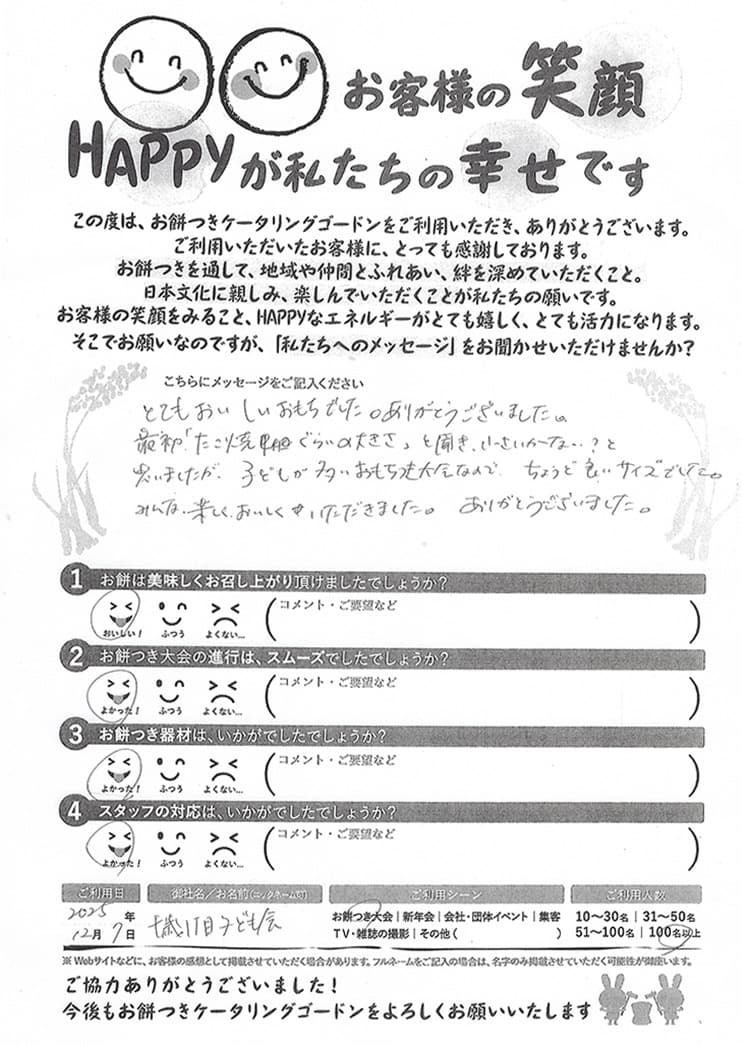 お客様の笑顔
HAPPYが私たちの幸せです
この度は、お餅つきケータリングゴードンをご利用いただき、ありがとうございます。
ご利用いただいたお客様に、とっても感謝しております。
お餅つきを通して、地域や仲間とふれあい、絆を深めていただくこと。
日本文化に親しみ、楽しんでいただくことが私たちの願いです。
お客様の笑顔をみること、HAPPYなエネルギーがとても嬉しく、とても活力になります。
そこでお願いなのですが、「私たちへのメッセージ」をお聞かせいただけませんか?
こちらにメッセージをご記入ください
とてもおいしいおもちでした。ありがとうございました。
最初「たこ焼ぐらいの大きさ」と聞き、小さいかな…?と
思いましたが、子どもが多いおもち大会なので、ちょうど良いサイズでした。
みんな楽しく、おいしくいただきました。 ありがとうございました。
1 お餅は美味しくお召し上がり頂けましたでしょうか?
おいしい! ふつう よくない… コメント・ご要望など
2 お餅つき大会の進行は、スムーズでしたでしょうか?
よかった! ふつう よくない… コメント・ご要望など
3 お餅つき器材は、いかがでしたでしょうか?
よかった! ふつう よくない… コメント・ご要望など
4 スタッフの対応は、いかがでしたでしょうか?
よかった! ふつう よくない… コメント・ご要望など
ご利用日 御社名/お名前(ニックネーム可) ご利用シーン ご利用人数
2025年 お餅つき大会|新年会|会社・団体イベント|集客 10〜30名|31〜50名
12月7日 丁目子ども会 TV・雑誌の撮影|その他( ) 51〜100名|100名以上
※Webサイトなどに、お客様の感想として掲載させていただく場合があります。フルネームをご記入の場合は、名字のみ掲載させていただく可能性が御座います。
ご協力ありがとうございました!
今後もお餅つきケータリングゴードンをよろしくお願いいたします